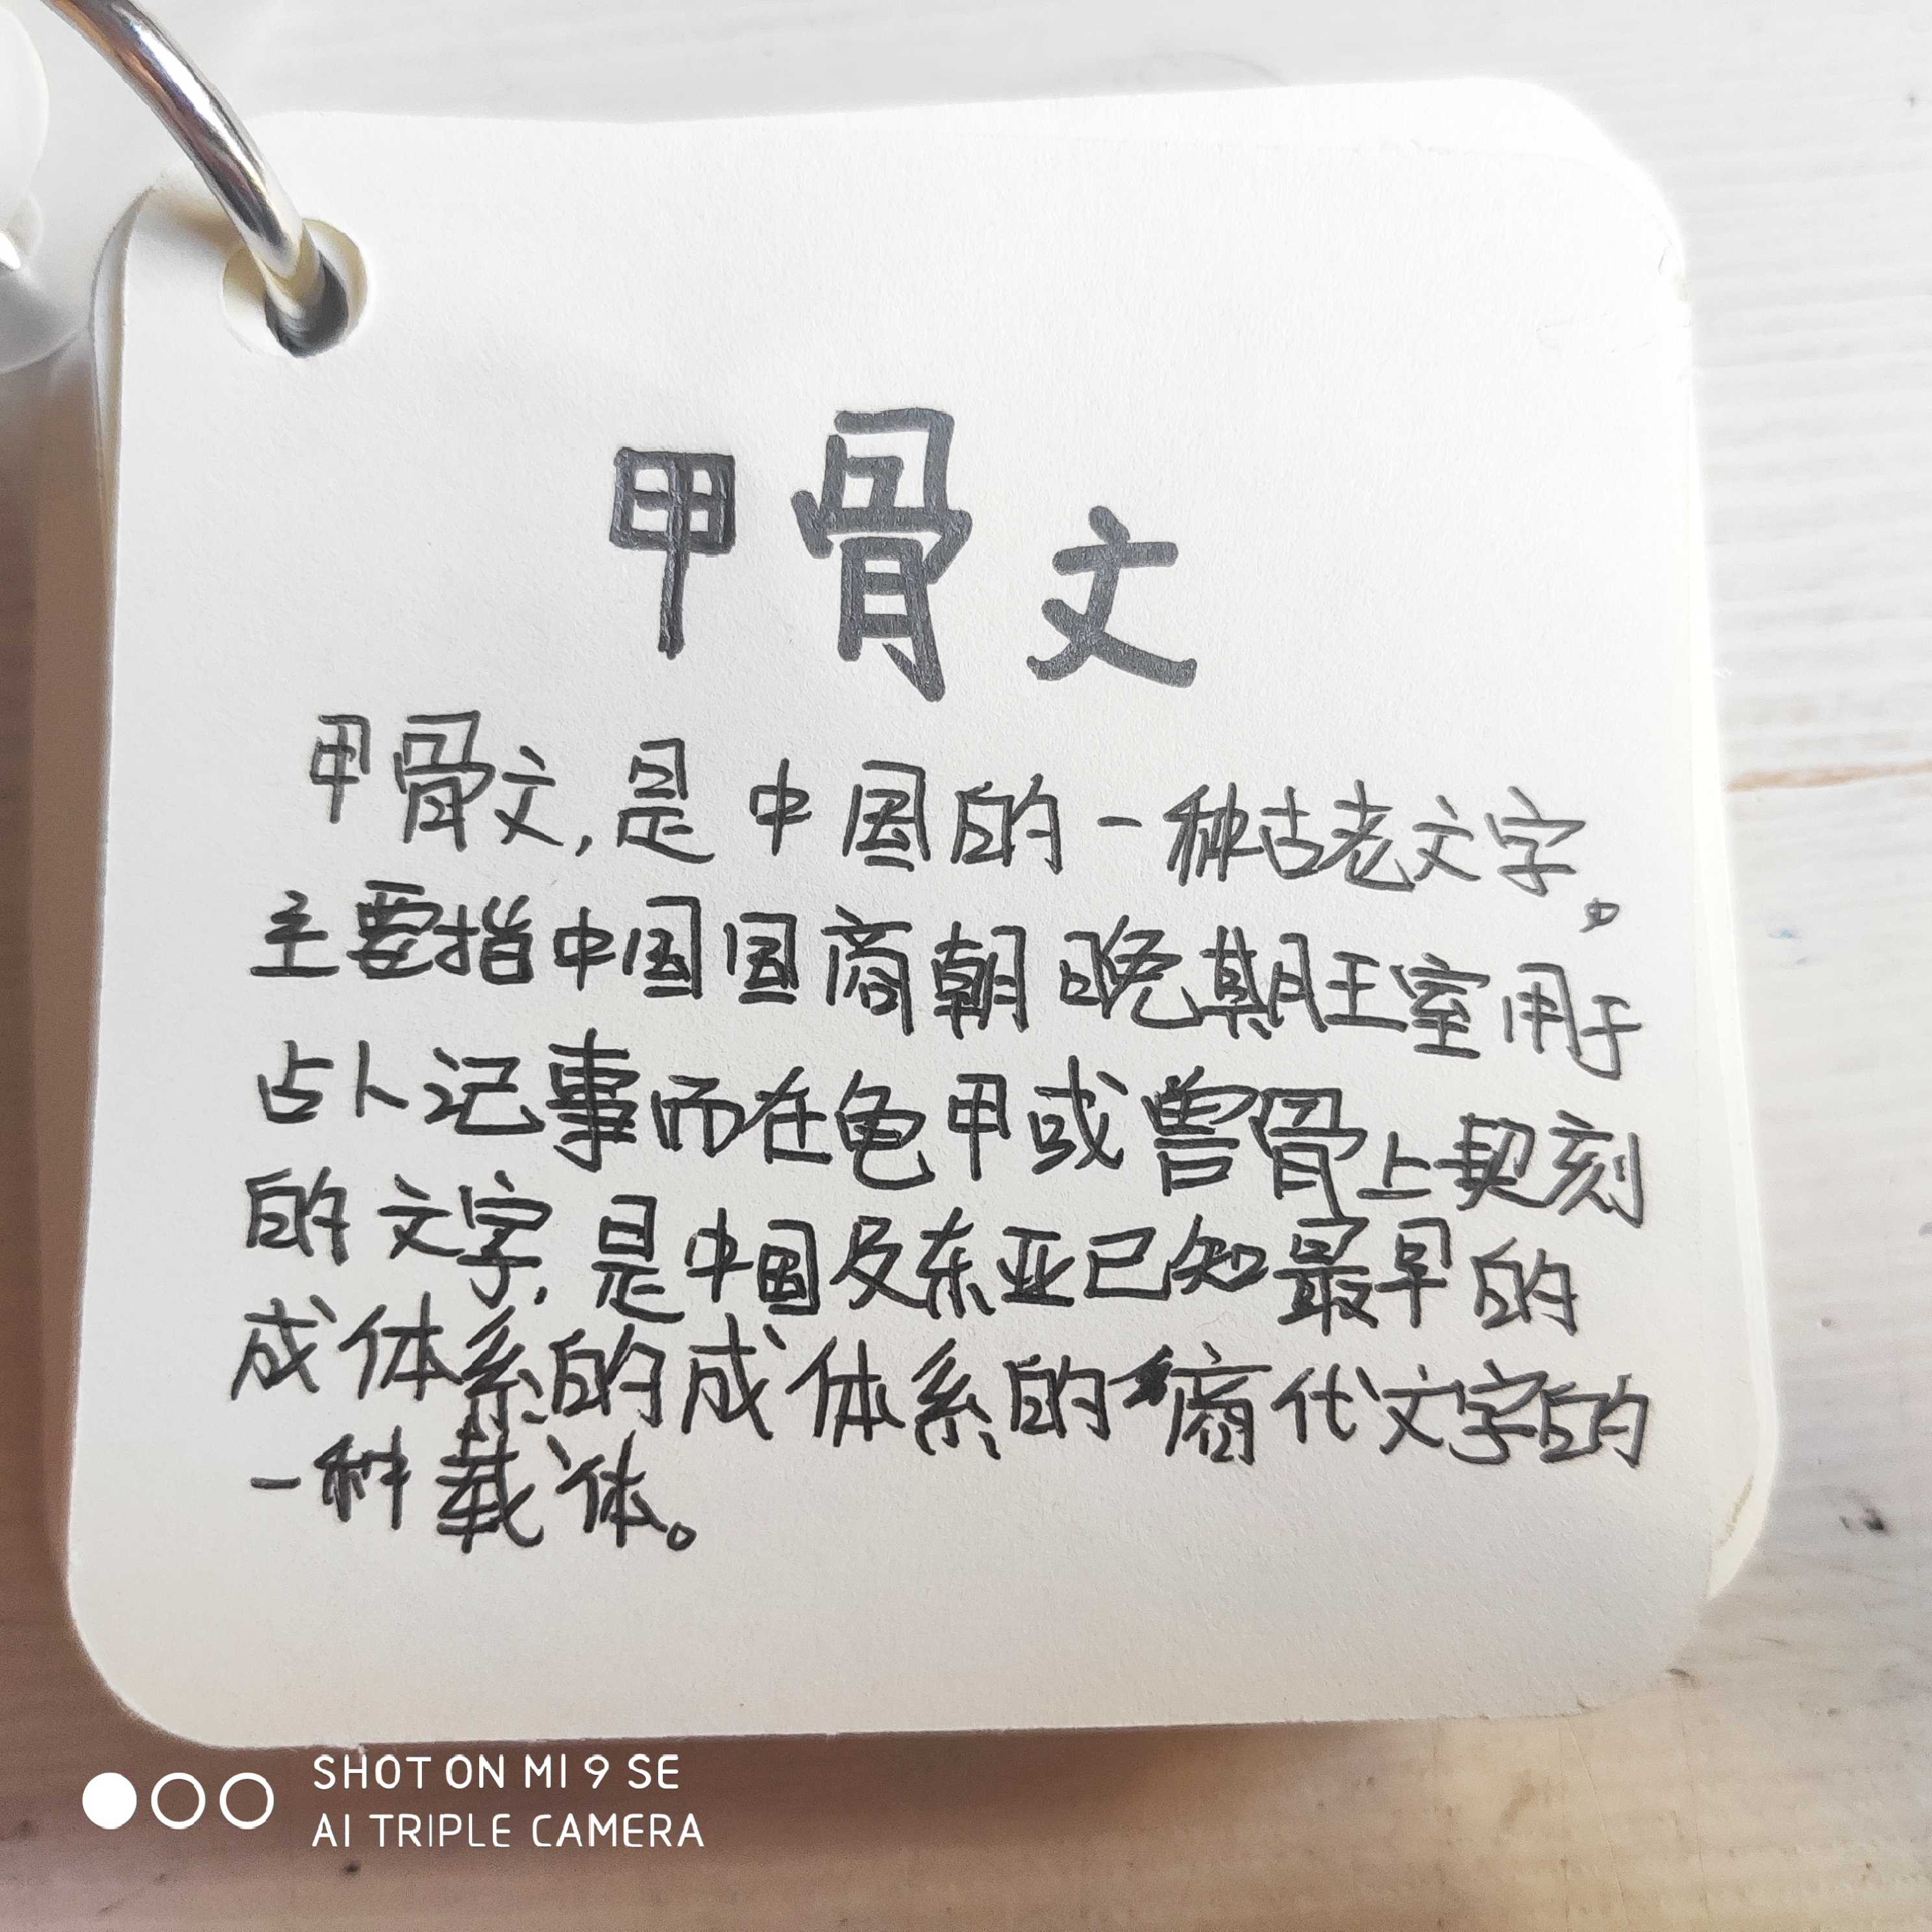 甲骨文
甲骨文,是中国的一种古老文字。
主要指中国国商朝晚期王室用于
占卜记事而在龟甲或兽骨上契刻
的文字,是中国及东亚已知最早的
成体系的成体系的商代文字的
一种载体。
SHOT ON MI 9 SE
AI TRIPLE CAMERA